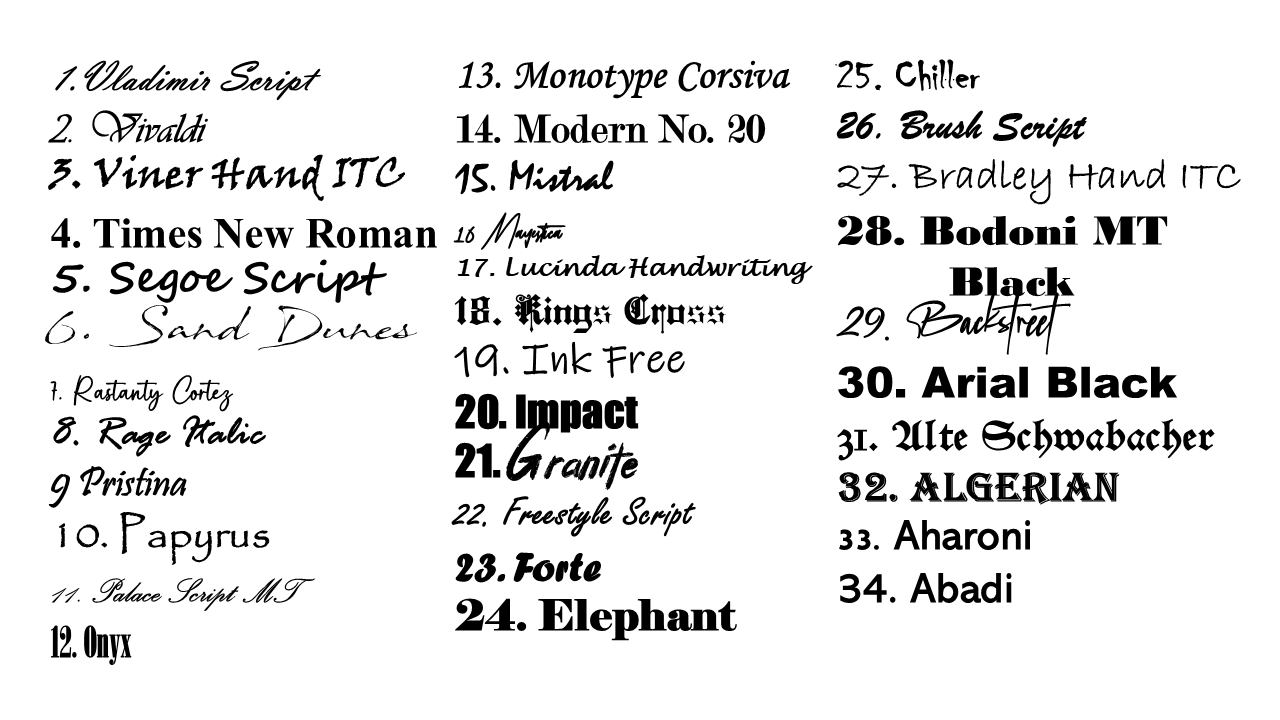 1. Vladimir Script
2. Vivaldi
3. Viner Hand ITC
4. Times New Roman
5. Segoe Script
6. Sand Dunes
7. Rastanty Cortez
8. Rage Italic
9 Pristina
10. Papyrus
11. Palace Script MT
12. Onyx
13. Monotype Corsiva
14. Modern No. 20
15. Mistral
16 Mayestica
17. Lucinda Handwriting
18. Kings Cross
19. Ink Free
20. Impact
21. Granite
22. Freestyle Script
23. Forte
24. Elephant
25. Chiller
26. Brush Script
27. Bradley Hand ITC
28. Bodoni MT
Black
29. Backstreet
30. Arial Black
31. Alte Schwabacher
32. ALGERIAN
33. Aharoni
34. Abadi